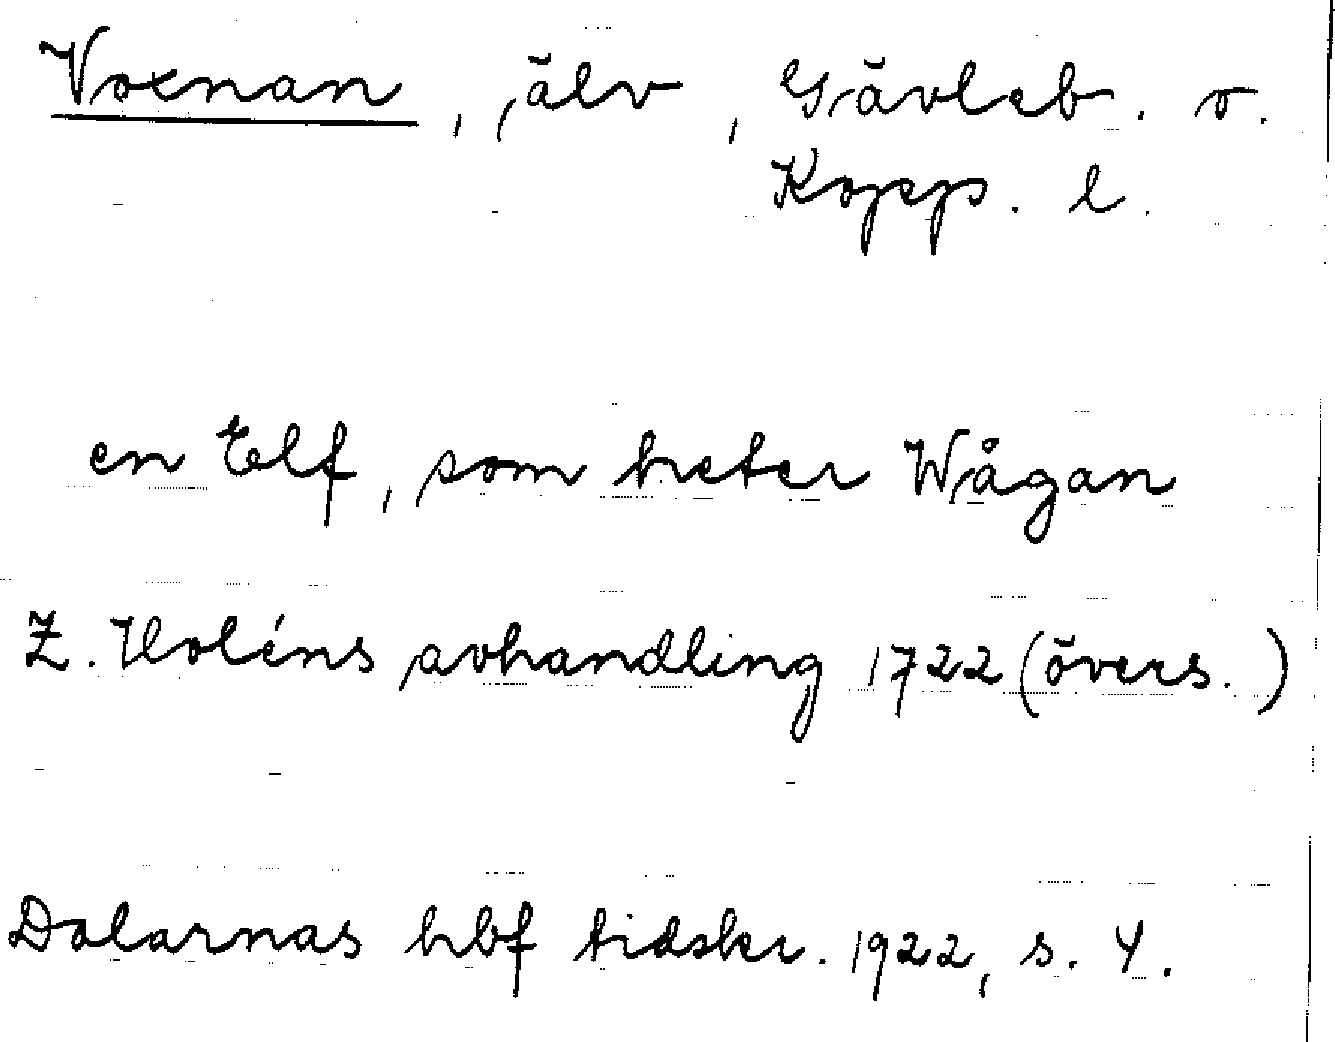 Voxnan, älv, Gävleb. o.
Kopp. l.
en Elf, som heter Wågan
Z. Holéns avhandling 1722 (övers.)
Dalarnas hbf tidskr. 1922, s. 4.